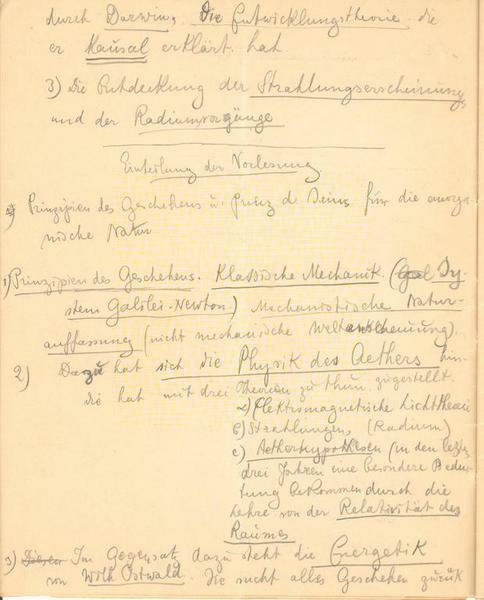 durch Darwin, Die Entwicklungstheorie die
er Kausal erklärt hat.
3) Die Entdeckung der Strahlungserscheinungen
und der Radiumvorgänge
Einteilung der Vorlesung
Prinzipien des Geschehens u. Prinz d. Seins für die anorga-
nische Natur
1) Prinzipien des Geschehens. Klassische Mechanik. (Sy-
stem Galilei-Newton.) Mechanistische Natur-
auffassung (nicht mechanische Weltanschauung).
2) Dazu hat sich die Physik des Aethers hin-
die hat mit drei Theorien zu thun. zugestellt.
a) Elektromagnetische Lichttheorie
b) Strahlungen (Radium)
c) Aetherhypothesen (in den letzt.
drei Jahren eine besondere Bedeu-
tung bekommen durch die
Lehre von der Relativität des
Raumes
3) Im Gegensatz dazu steht die Energetik
von Wilh Ostwald. Die sucht alles Geschehen zurück